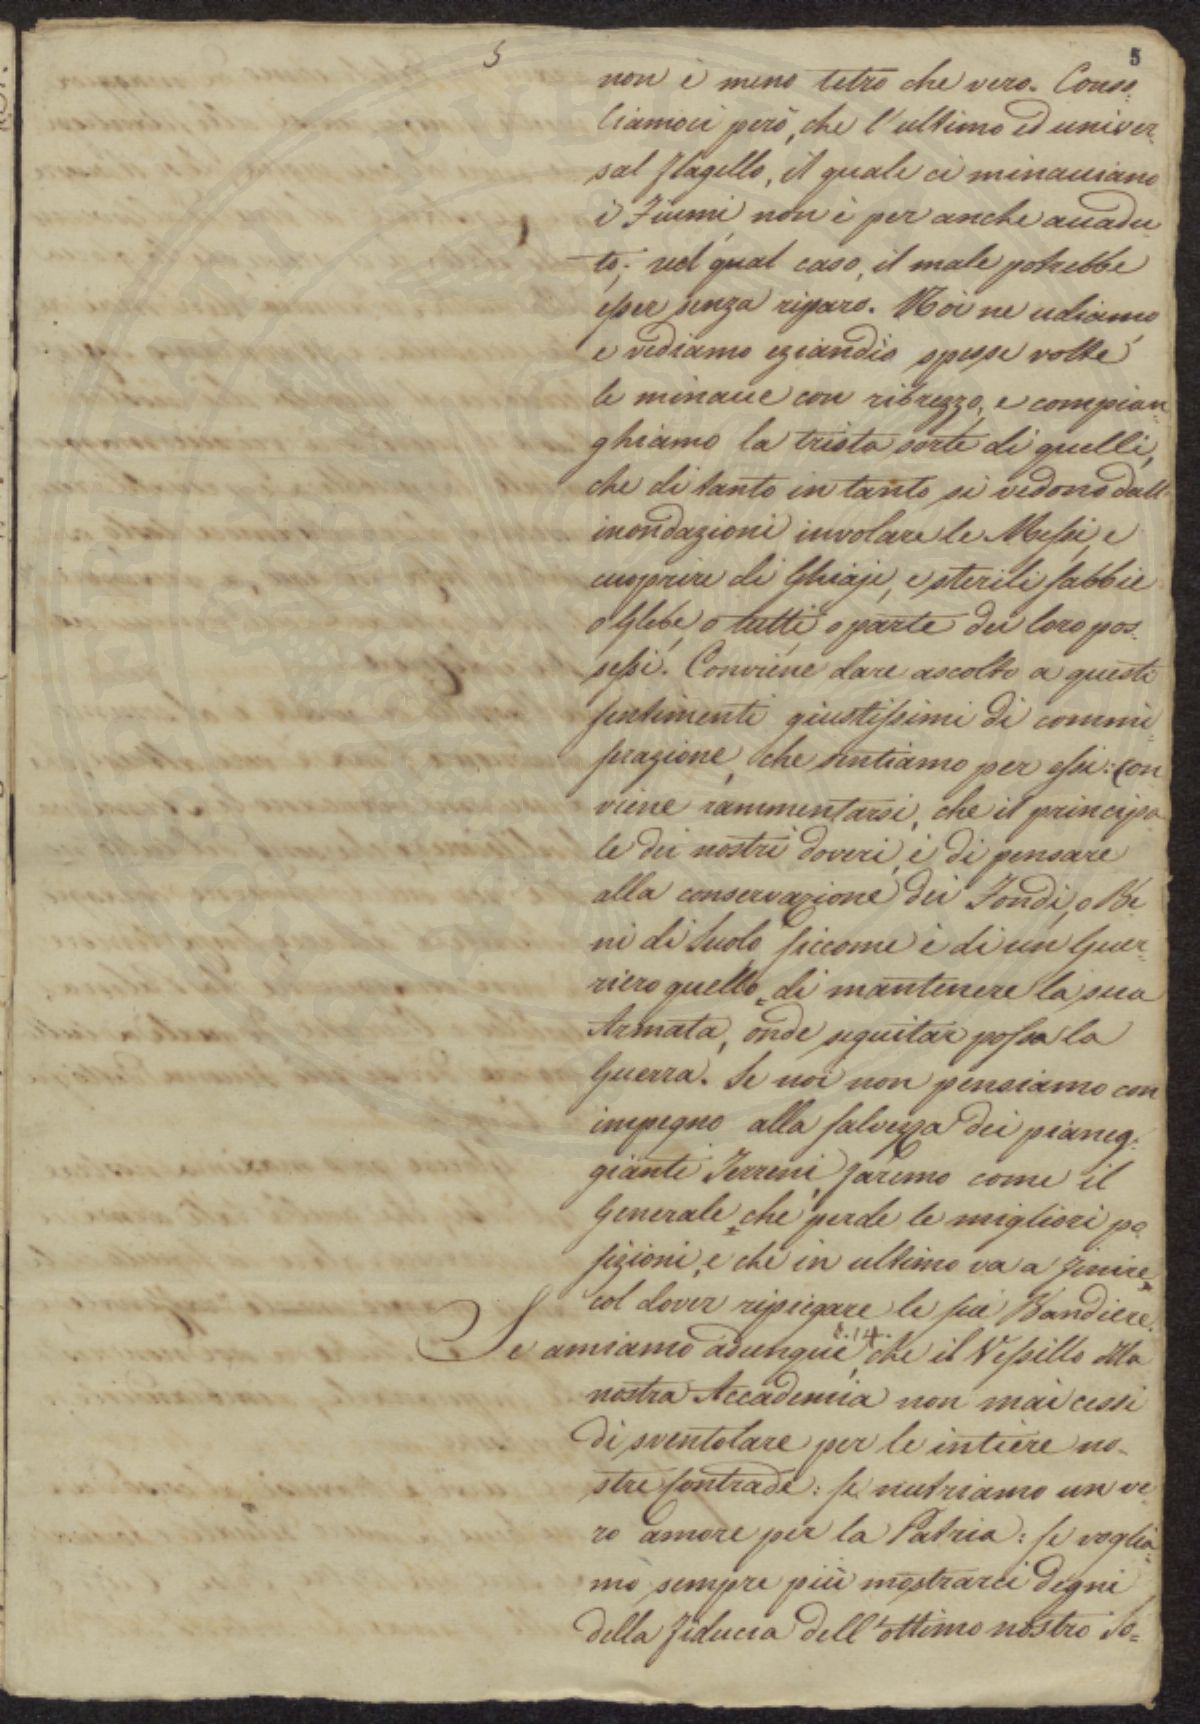 5
5
non è meno tetro che vero. Conso-
liamoci però, che l'ultimo ed univer-
sal flagello, il quale ci minacciano
i Fiumi, non è per anche accadu-
to; nel qual caso, il male potrebbe
esser senza riparo. Noi ne udiamo,
e vediamo eziandio spesse volte
le minacce con ribrezzo, e compian-
ghiamo la trista sorte di quelli,
che di tanto in tanto si vedono dall'
inondazioni involare le Messi, e
cuoprire di Ghiaje, e sterili sabbie
o Glebe, o tutti, o parte dei loro pos-
sessi. Conviene dare ascolto a questi
sentimenti giustissimi di commi-
serazione, che sentiamo per essi: con
viene rammentarsi, che il principa-
le dei nostri doveri, è di pensare
alla conservazione dei Fondi, o Be-
ni di Suolo, siccome è di un Guer-
riero quello di mantenere la sua
Armata, onde seguitar possa la
Guerra. Se noi non pensiamo con
impegno alla salvezza dei pianeg-
gianti Terreni, faremo come il
Generale, che perde le migliori po-
sizioni, e che in ultimo va a finire
col dover ripiegare le sue Bandiere.
§. 14.
Se amiamo adunque, che il Vessillo della
nostra Accademia non mai cessi
di sventolare per le intiere no-
stre Contrade: se nutriamo un ve-
ro amore per la Patria: se voglia-
mo sempre più mostrarci degni
della fiducia dell'ottimo nostro So=